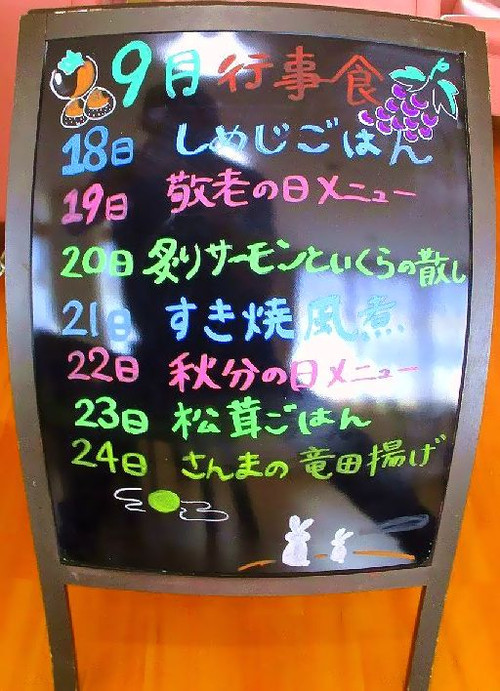 9月行事食
18日 しめじごはん
19日 敬老の日メニュー
20日 炙りサーモンといくらの散し
21日 すき焼風煮
22日 秋分の日メニュー
23日 松茸ごはん
24日 さんまの竜田揚げ